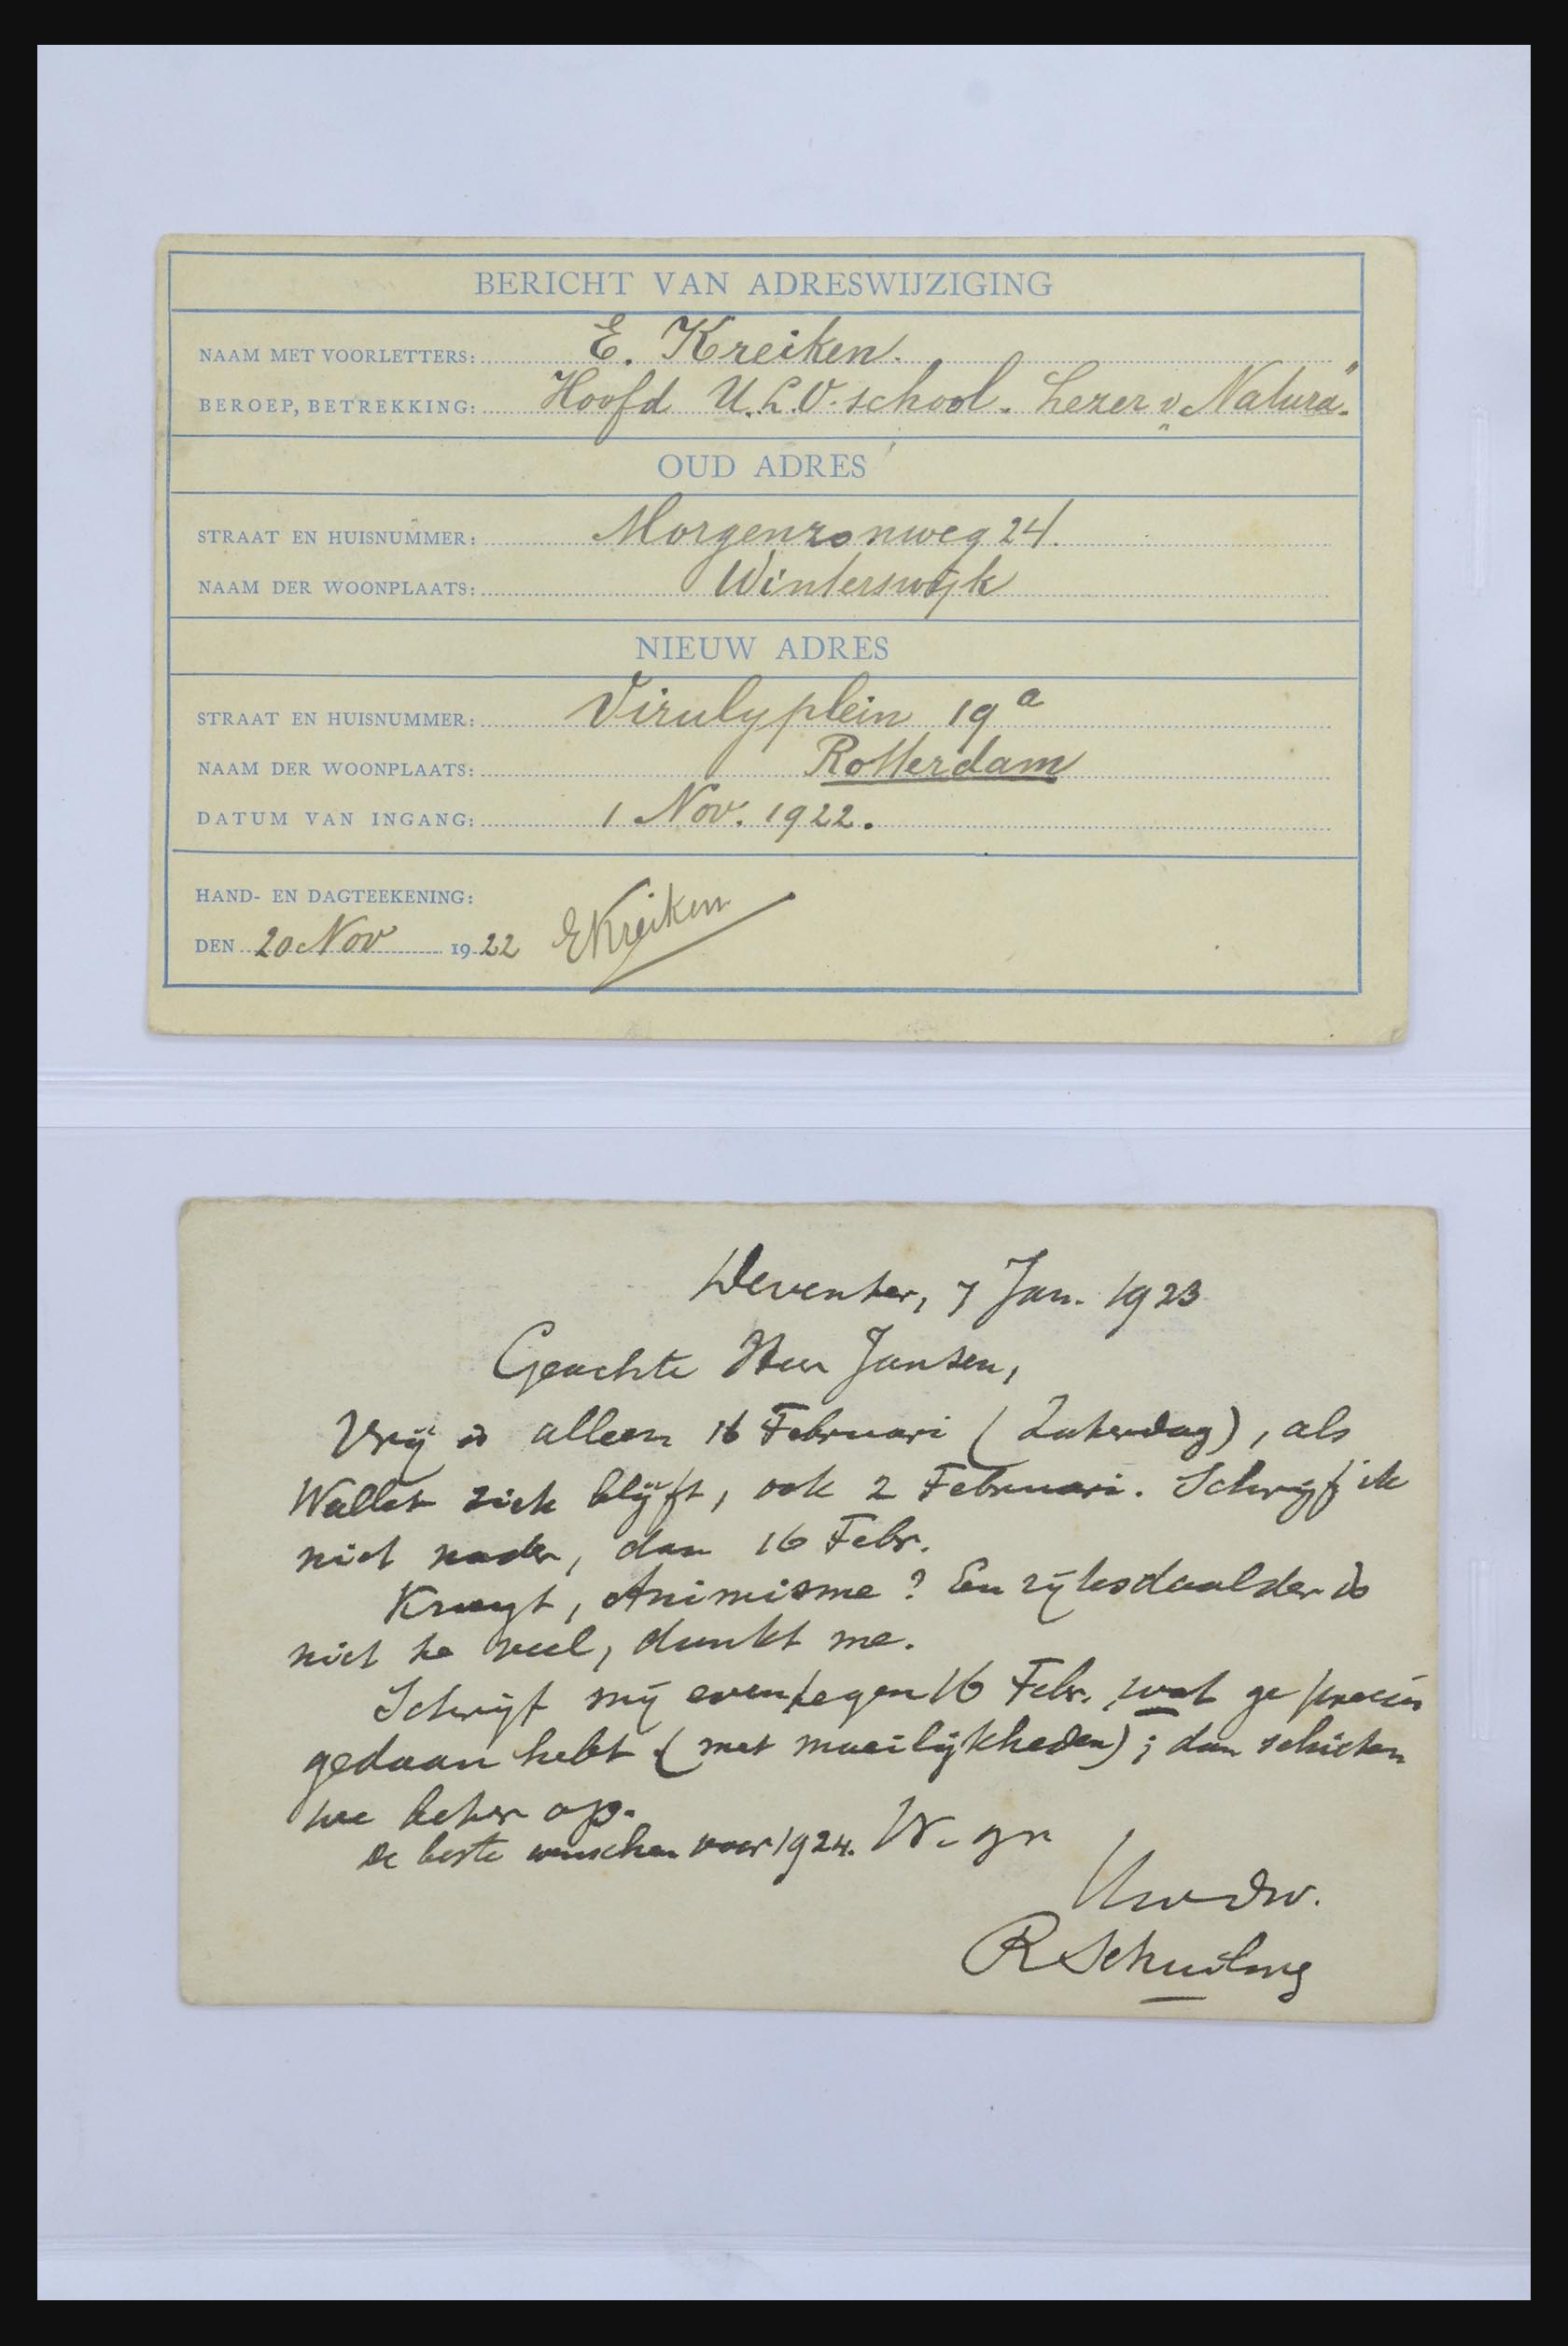 BERICHT VAN ADRESWIJZIGING
NAAM MET VOORLETTERS: E. Kreiken.
BEROEP, BETREKKING: Hoofd U.L.O. school. Lezer v. „Natura”.
OUD ADRES
STRAAT EN HUISNUMMER: Morgenzonweg 24.
NAAM DER WOONPLAATS: Winterswijk
NIEUW ADRES
STRAAT EN HUISNUMMER: Virulyplein 19a
NAAM DER WOONPLAATS: Rotterdam
DATUM VAN INGANG: 1 Nov. 1922.
HAND- EN DAGTEEKENING:
DEN 20 Nov 1922 EKreiken
Deventer, 7 Jan. 1923
Geachte Heer Jansen,
Vrij is alleen 16 Februari (Zaterdag), als
Wallet ziek blijft, ook 2 Februari. Schrijf ik
niet nader, dan 16 Febr.
Kruyt, Animisme? Een rijksdaalder is
niet te veel, dunkt me.
Schrijf mij even tegen 16 Febr. wat ge precies
gedaan hebt (met moeilijkheden); dan schieten
we beter op.
De beste wenschen voor 1924. W. gr
Uw dw.
R Schuiling